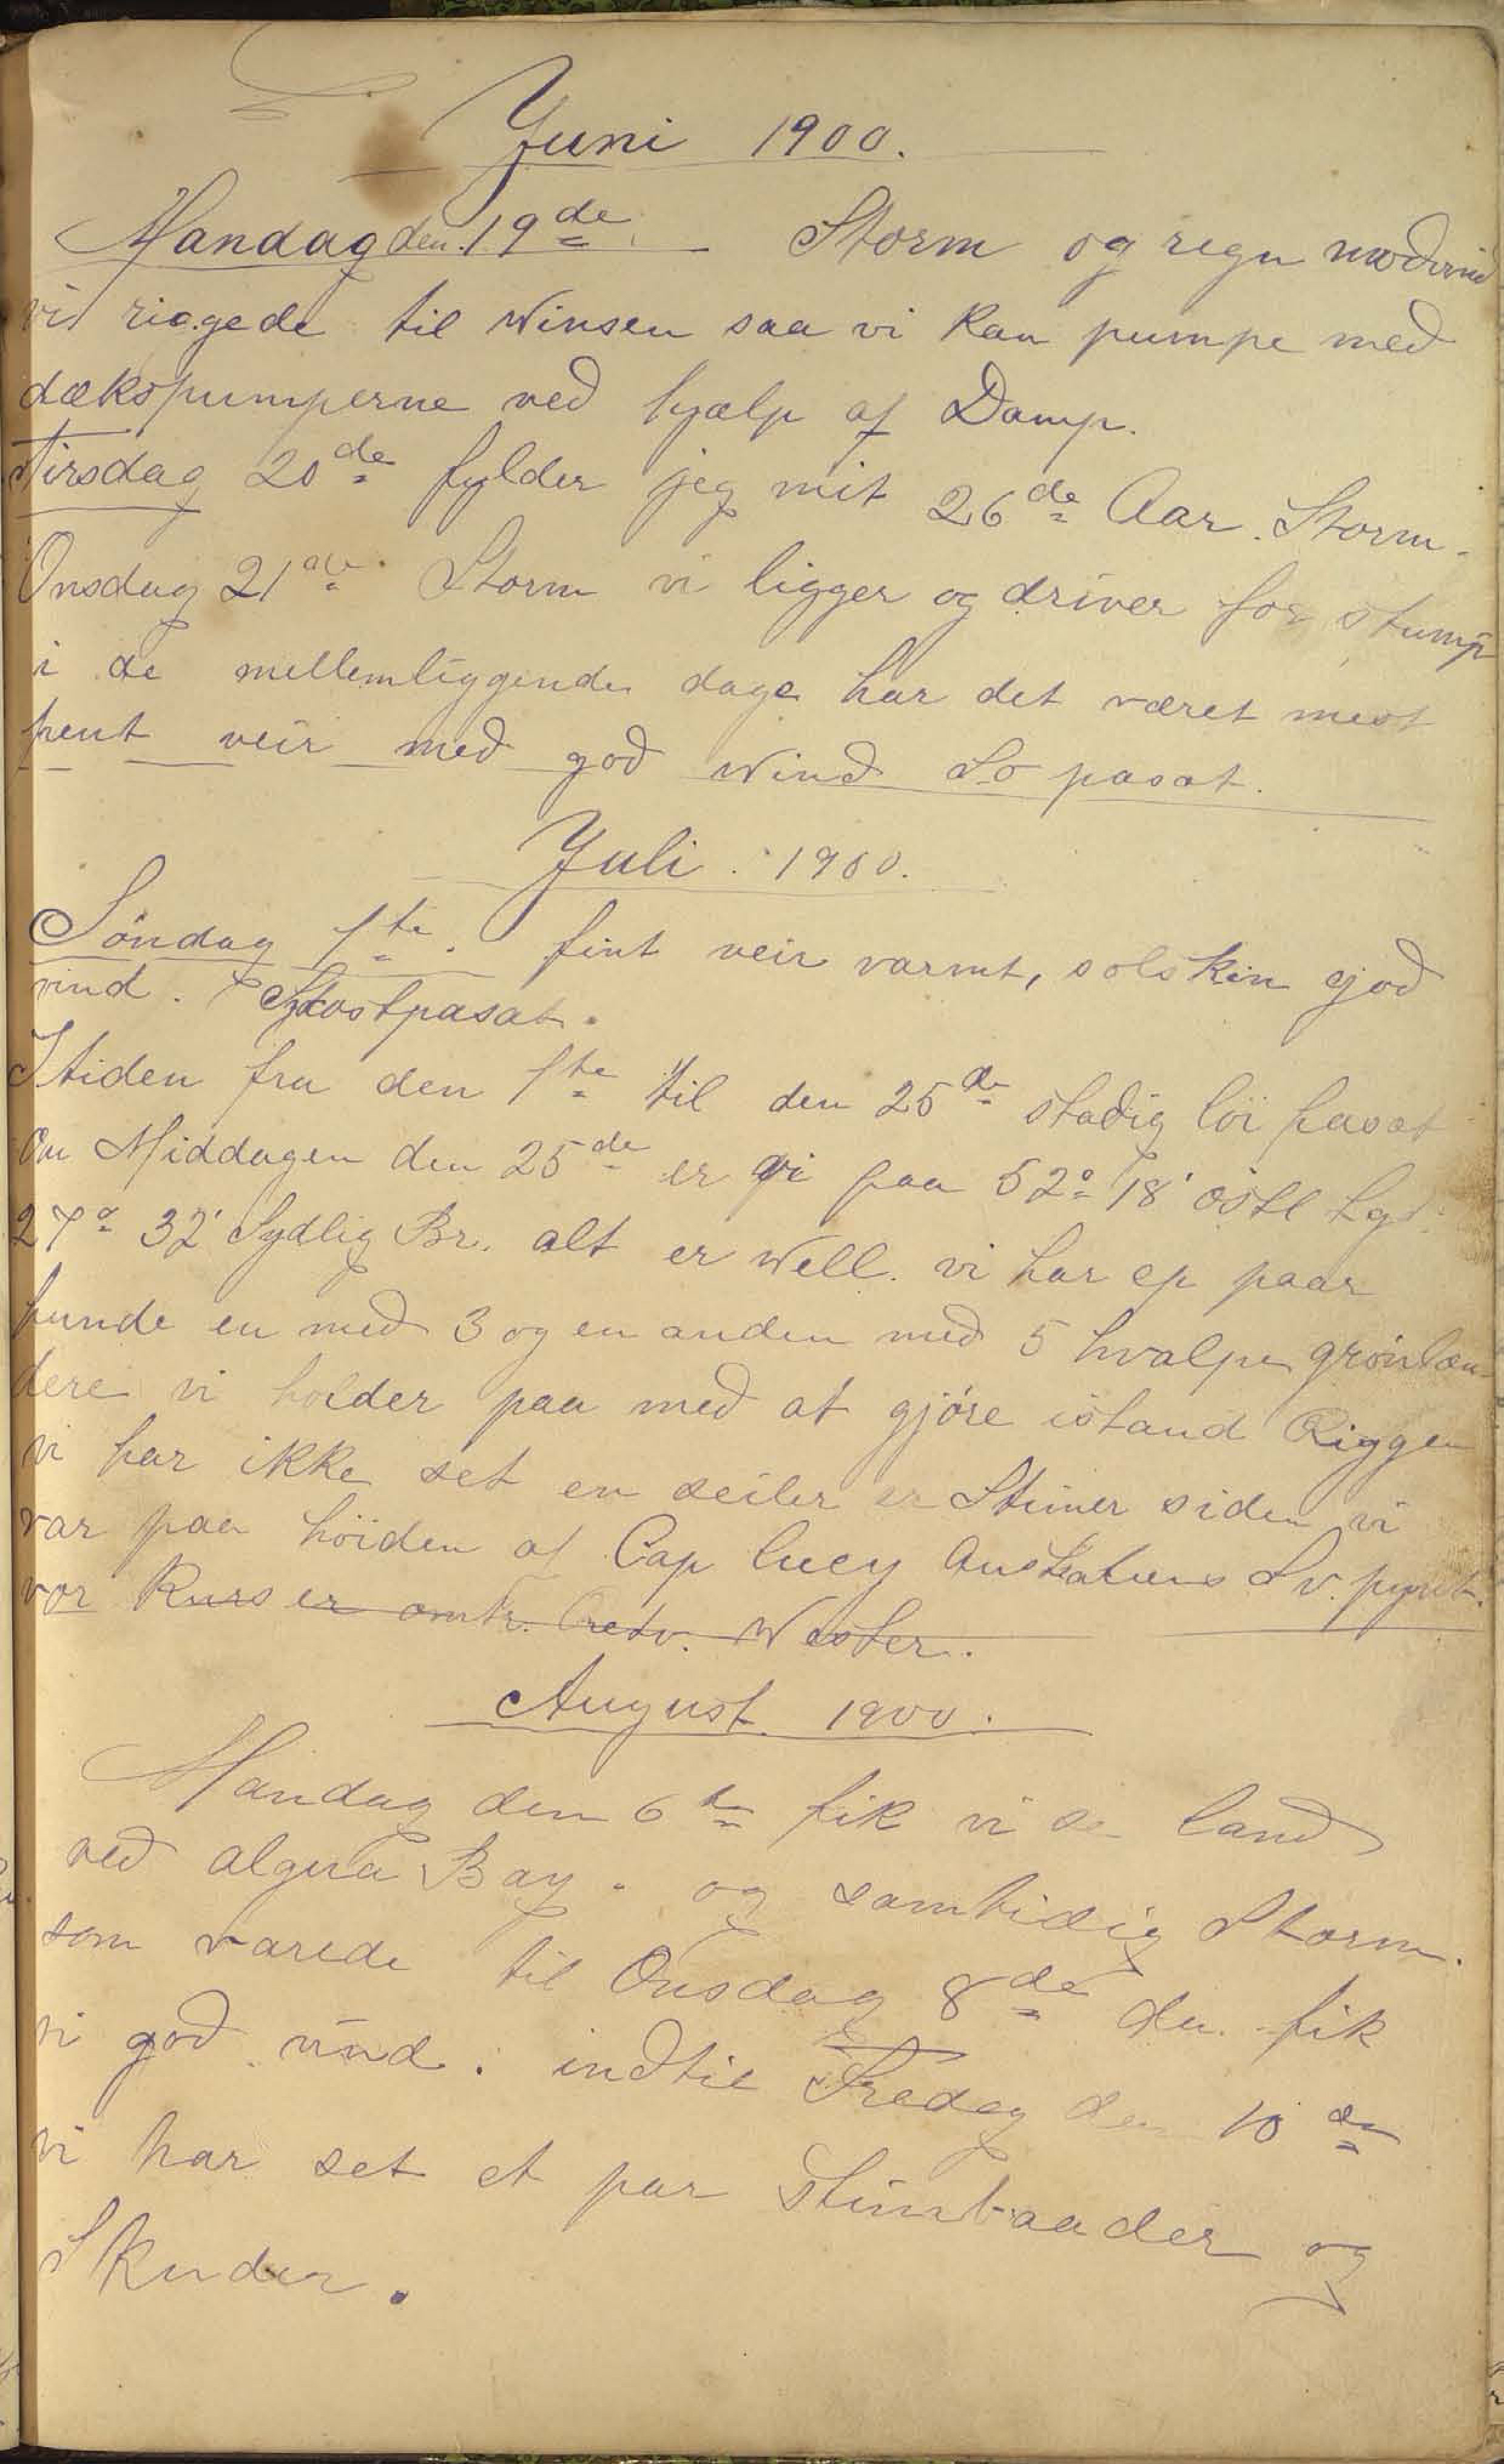 Juni 1900.
Mandag den 19de Storm og regn modvind
vi riggede til Winsen saa vi kan pumpe med
dækspumperne ved hjælp af Damp.
Tirsdag 20de fylder jeg mit 26de Aar. Storm.
Onsdag 21de Storm vi ligger og driver for stump
i de mellemliggende dage har det været mest
pent veir med god Wind So pasat.
Juli 1900.
Söndag 1te. fint veir varmt, solskin god
vind. Sydostpasat.
I tiden fra den 1te til den 25de stadig löi pasat
Om Middagen den 25de er vi paa 52° 18' östl Lgd.
27° 32' Sydlig Br. alt er Well. vi har et paar
hunde en med 3 og en anden med 5 hvalpe grönlæn-
dere vi holder paa med at gjöre istand Riggen
vi har ikke set en seiler er Stimer siden vi
var paa höiden af Cap Australiens Sv. pynt.
vor Kurs er omtr. retv. Wester.
August 1900.
Mandag den 6te fik vi se land
ved algoa Bay. og samtidig Storm.
som varede til Onsdag 8de da fik
vi god vind. indtil Fredag den 10de
vi har set et par Stimbaader og
Skuder.